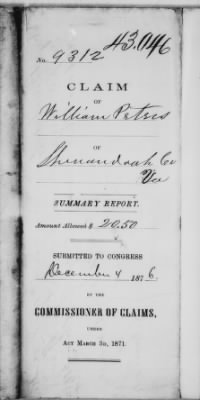 43.046
No. 9312
CLAIM
OF
William Peters
OF
Shenandoah Co
Va
SUMMARY REPORT.
Amount Allowed $ 20.50
SUBMITTED TO CONGRESS
December 4 1876.
BY THE
COMMISSIONER OF CLAIMS,
UNDER
ACT MARCH 3D, 1871.